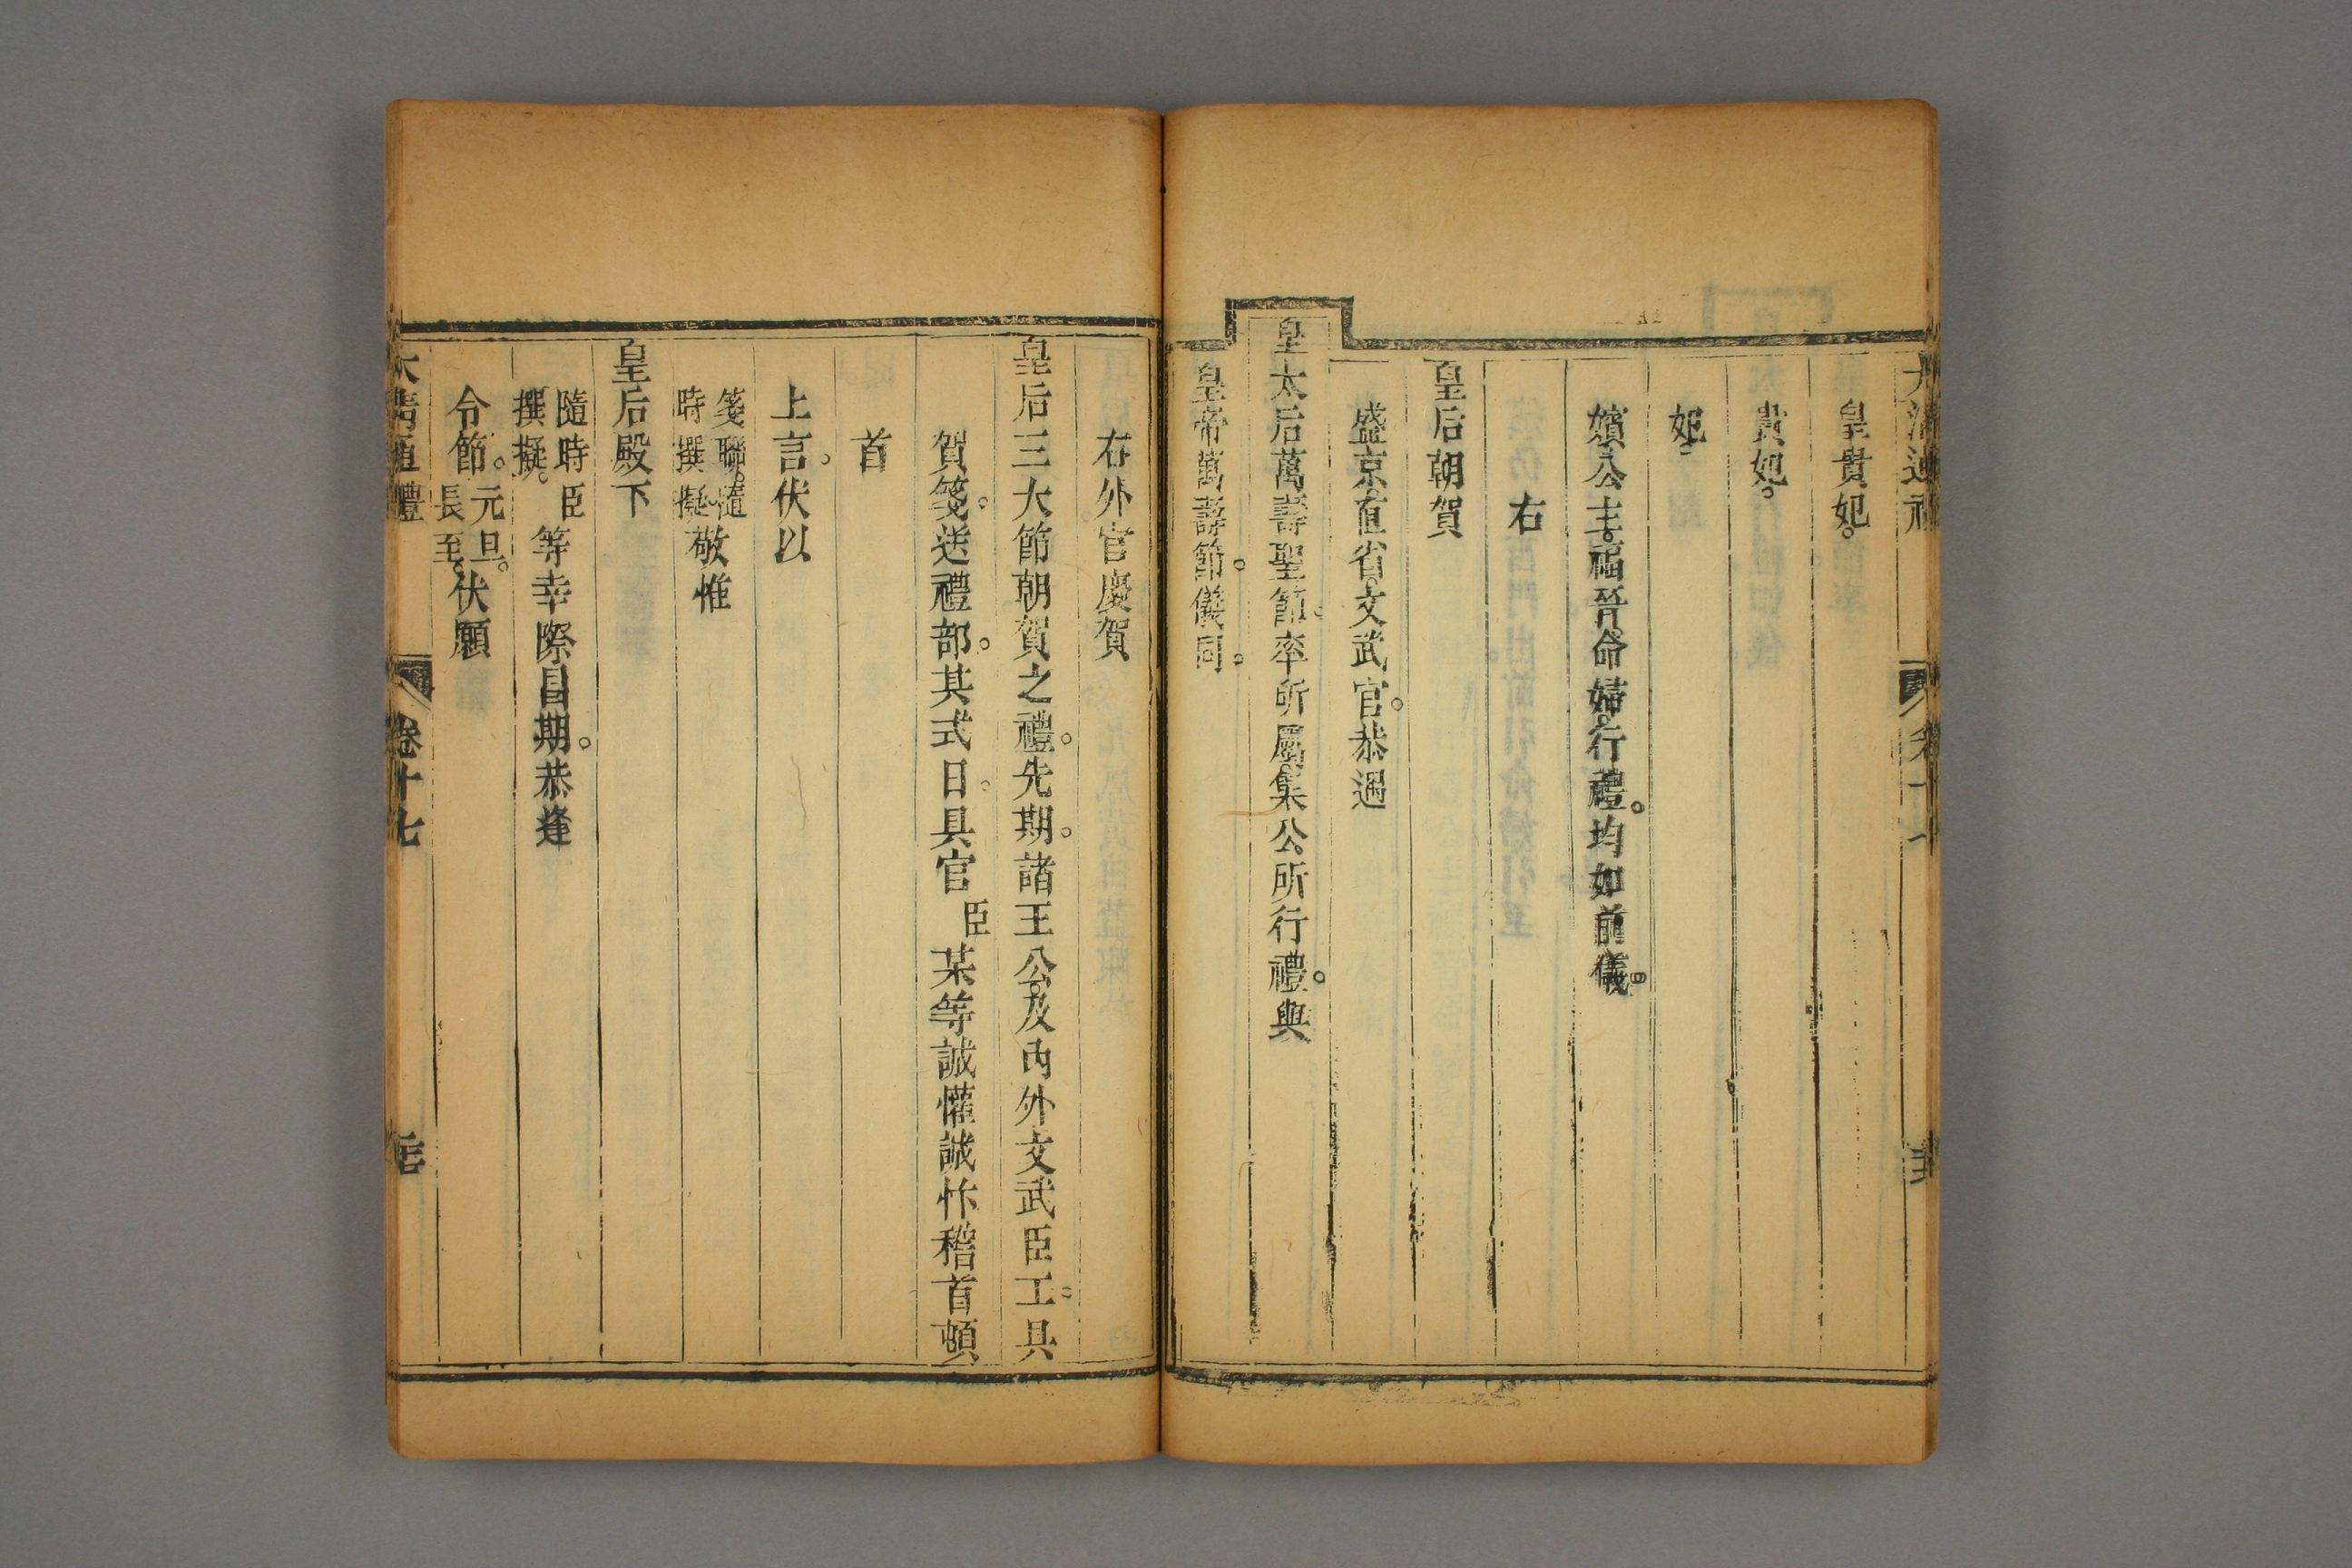 大清通禮
卷十七
皇貴妃。
貴妃。
妃
嬪公主。福晉。命婦。行禮。均如前儀。
右
皇后朝賀
盛京。直省。文武官。恭遇
皇太后萬壽聖節。率所屬。集公所行禮。與
皇帝萬壽節。儀同。
在外官慶賀
皇后三大節朝賀之禮。先期。諸王公。及內外文武臣工。具
賀箋。送禮部。其式曰。具官臣某等誠懽誠忭稽首頓
首
上言。伏以
箋聯。隨時撰擬敬惟
皇后殿下
隨時撰擬。臣等幸際昌期。恭逢
令節。元旦。長至。伏願
大清通禮
卷十七